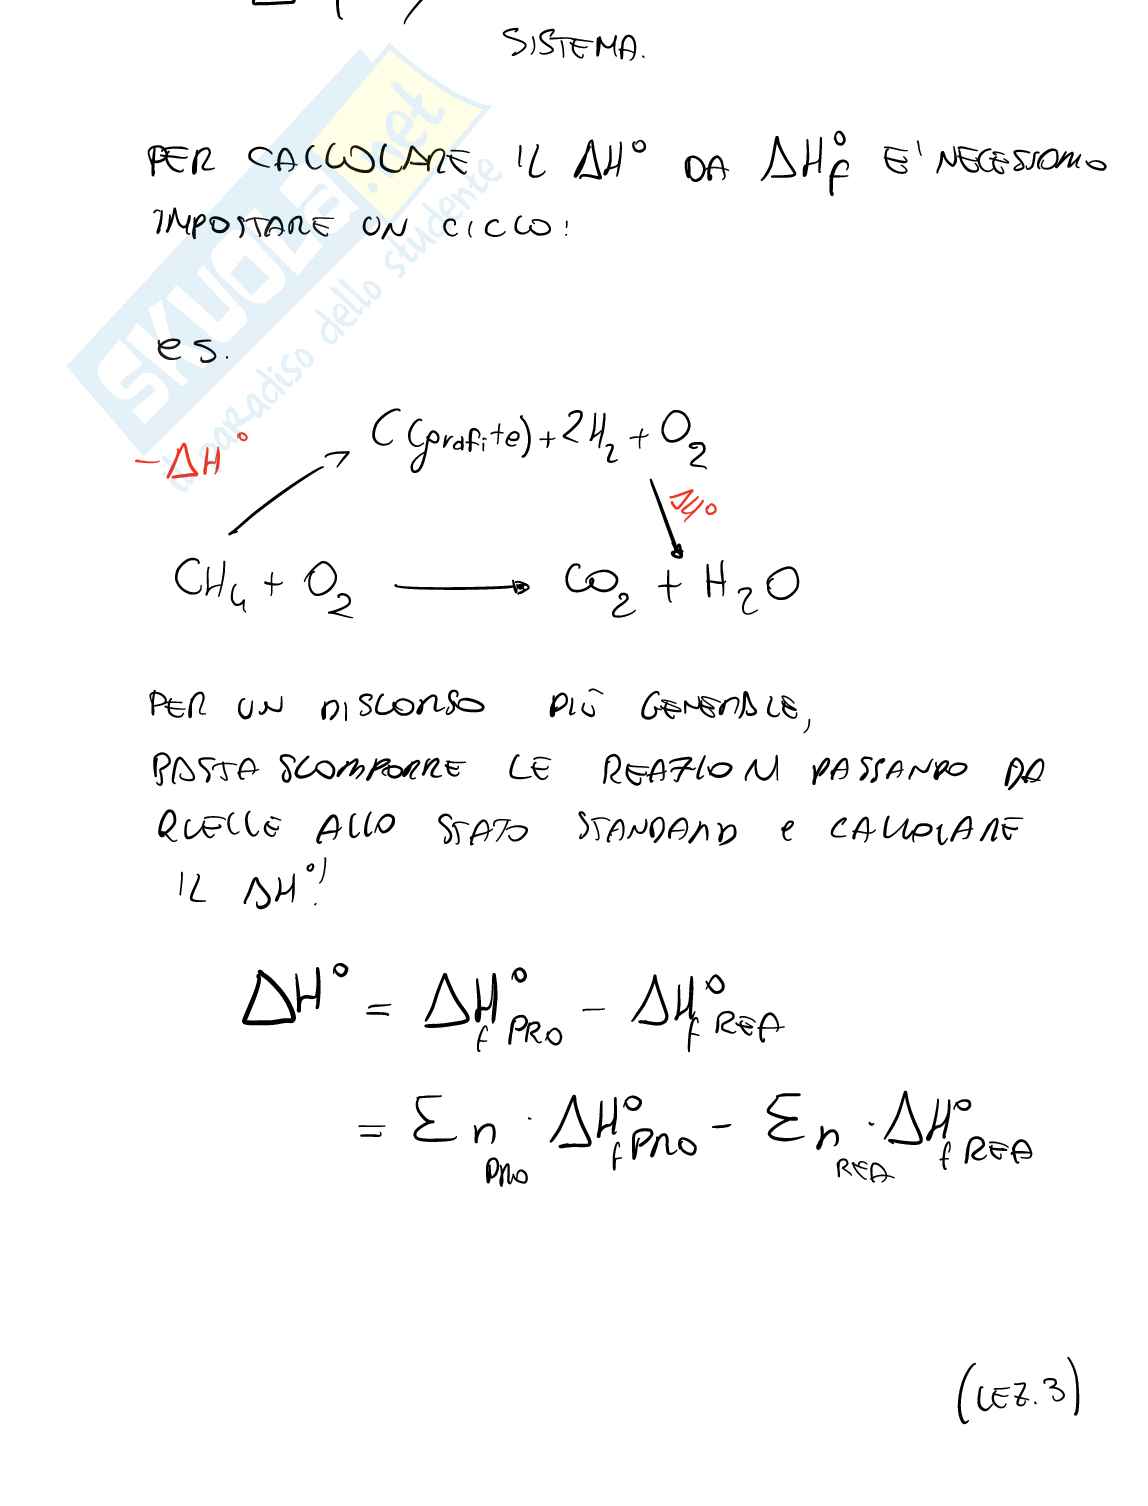 SISTEMA.
PER CALCOLARE IL ΔH° DA ΔH°f E' NECESSARIO
IMPOSTARE UN CICLO:
es.
C(grafite) + 2H2 + O2
-ΔH°
ΔH°
CH4 + O2 → CO2 + H2O
PER UN DISCORSO PIÙ GENERALE,
BASTA SCOMPORRE LE REAZIONI PASSANDO DA
QUELLE ALLO STATO STANDARD e CALCOLARE
IL ΔH°!
ΔH° = ΔH°f PRO - ΔH°f REA
= Σ n PRO · ΔH°f PRO - Σ n REA · ΔH°f REA
(LEZ. 3)
SKUOLA.net
il paradiso dello studente